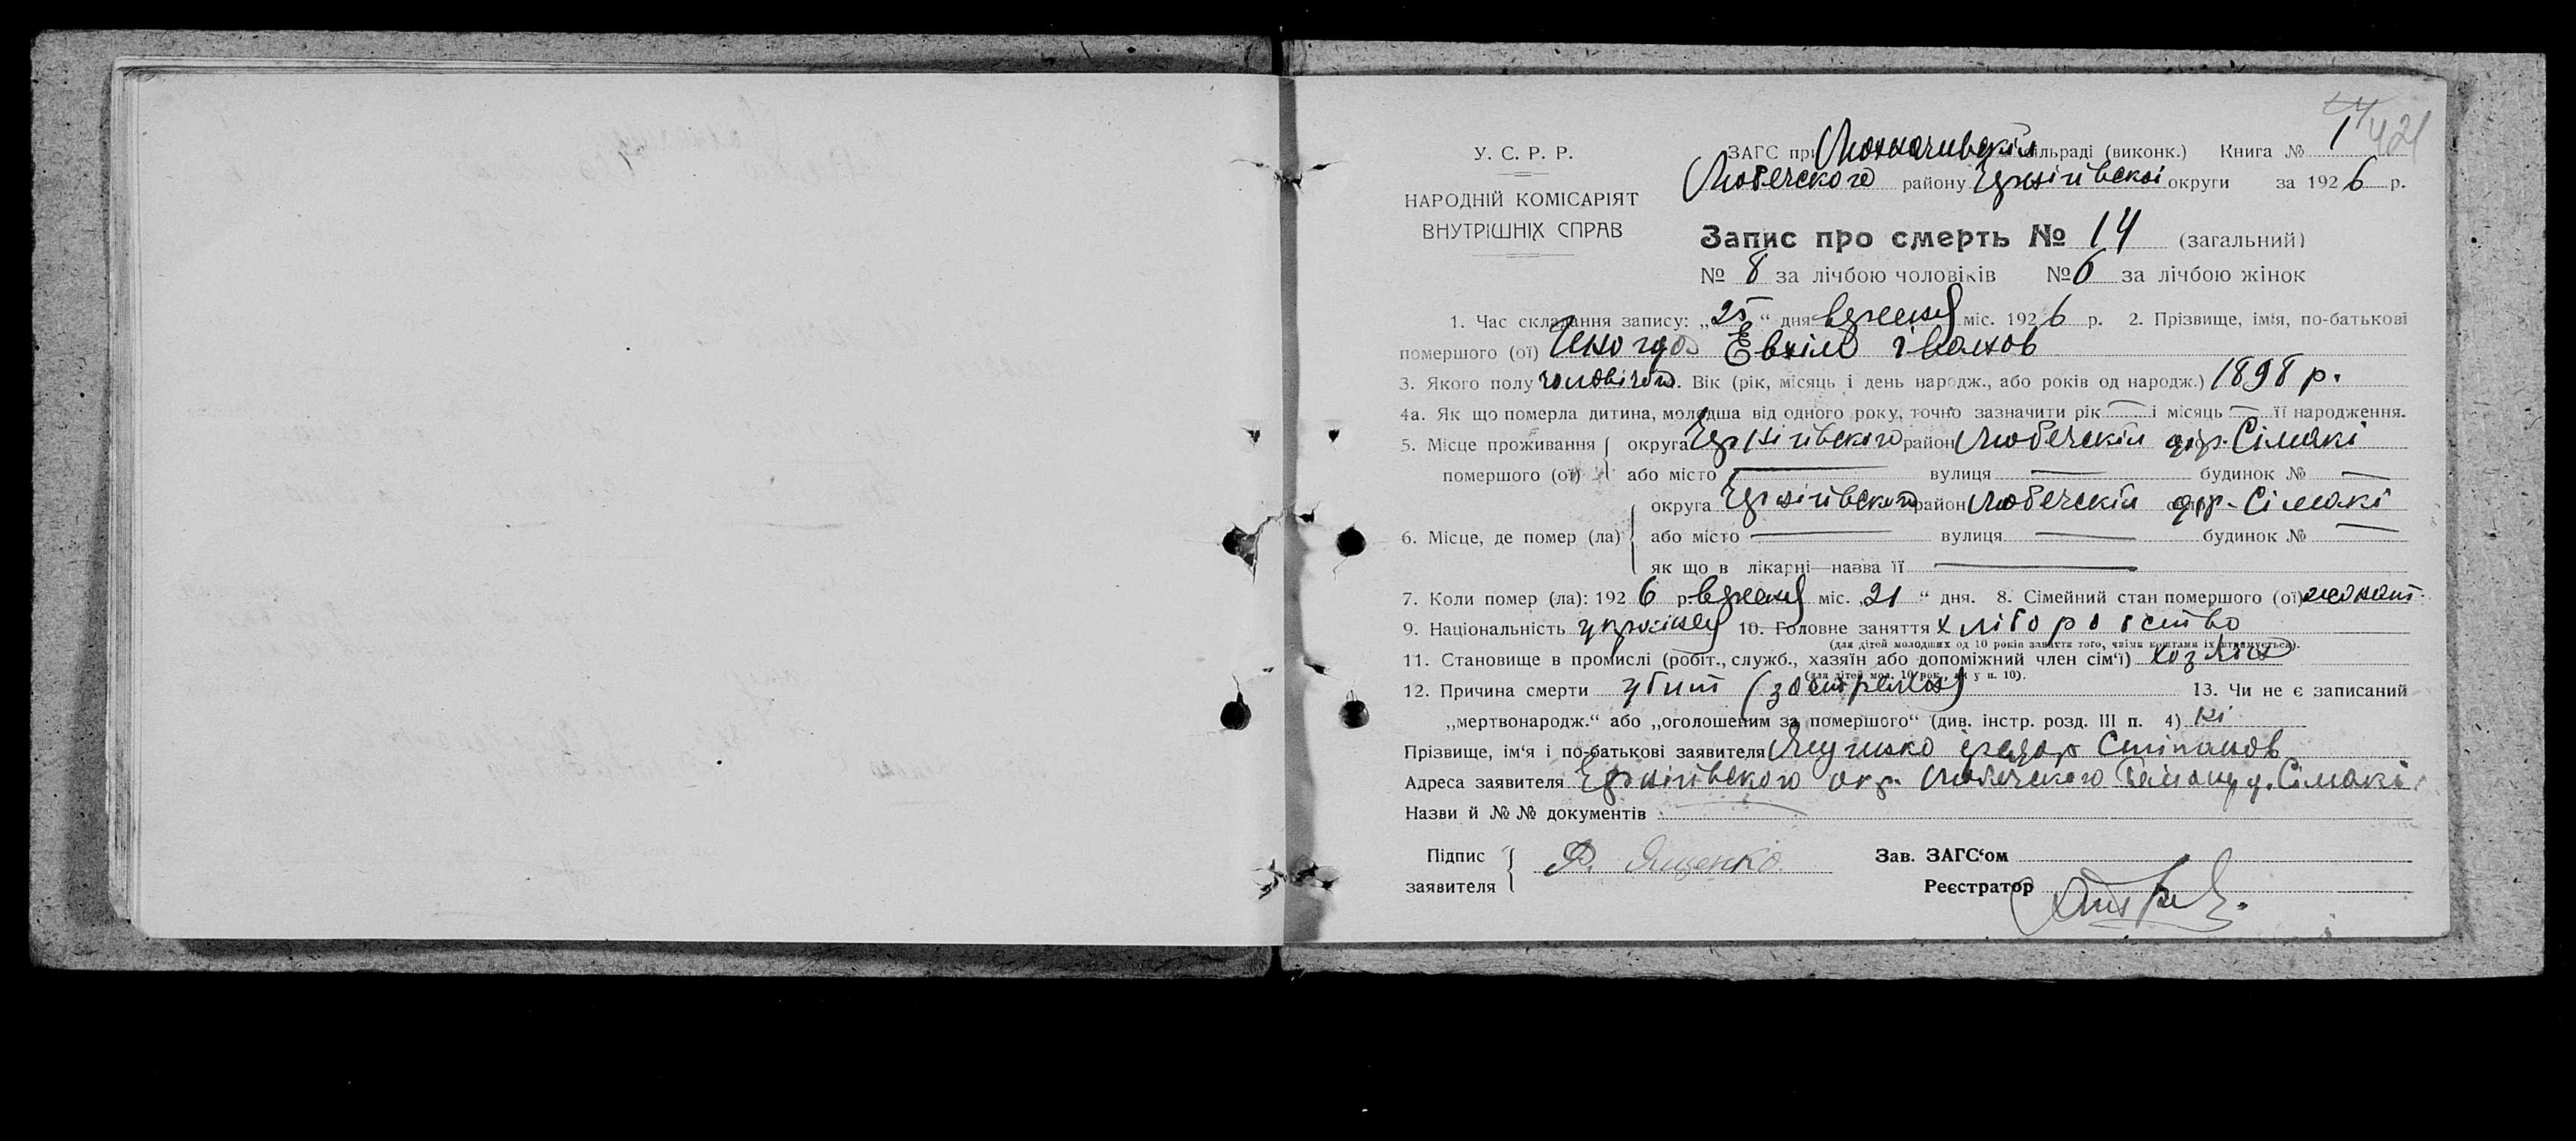 У. С. Р. Р.
НАРОДНІЙ КОМІСАРІЯТ
ВНУТРІШНІХ СПРАВ
ЗАГС при сільраді (виконк.) Книга № 1
Любечского району Чернігівскоі округи за 1926 р.
Запис про смерть № 14 (загальний)
№ 8 за лічбою чоловіків № 6 за лічбою жінок
1. Час складання запису: „25“ дня вересня міс. 1926 р. 2. Прізвище, імʼя, по-батькові
помершого (ої) Евхім іванов
3. Якого полу чоловічого. Вік (рік, місяць і день народж., або років од народж.) 1898 р.
4а. Як що померла дитина, молодша від одного року, точно зазначити рік — і місяць — її народження.
5. Місце проживання округа Чернігівского район Любечскій дер. Сімакі
помершого (ої) або місто — вулиця — будинок № —
округа Чернігівского район Любечскій дер. Сімакі
6. Місце, де помер (ла) або місто — вулиця — будинок № —
як що в лікарні—назва її —
7. Коли помер (ла): 1926 р. вересня міс. „21“ дня. 8. Сімейний стан помершого (ої) женат.
9. Національність українец 10. Головне заняття хліборобство
(для дітей молодших од 10 років заняття того, чиїми коштами їх утримується).
11. Становище в промислі (робіт., служб., хазяїн або допоміжний член сімʼї) хозяін
(для дітей мол. 10 рок., як у п. 10).
12. Причина смерти убит (застрелен) 13. Чи не є записаний
„мертвонародж.“ або „оголошеним за помершого“ (див. інстр. розд. III п. 4) ні
Прізвище, імʼя і по-батькові заявителя Стіпанов
Адреса заявителя Чернігівского окр. Любечского району д. Сімакі
Назви й №№ документів —
Підпис
заявителя Ф. Ященко
Зав. ЗАГСʻом
Реєстратор